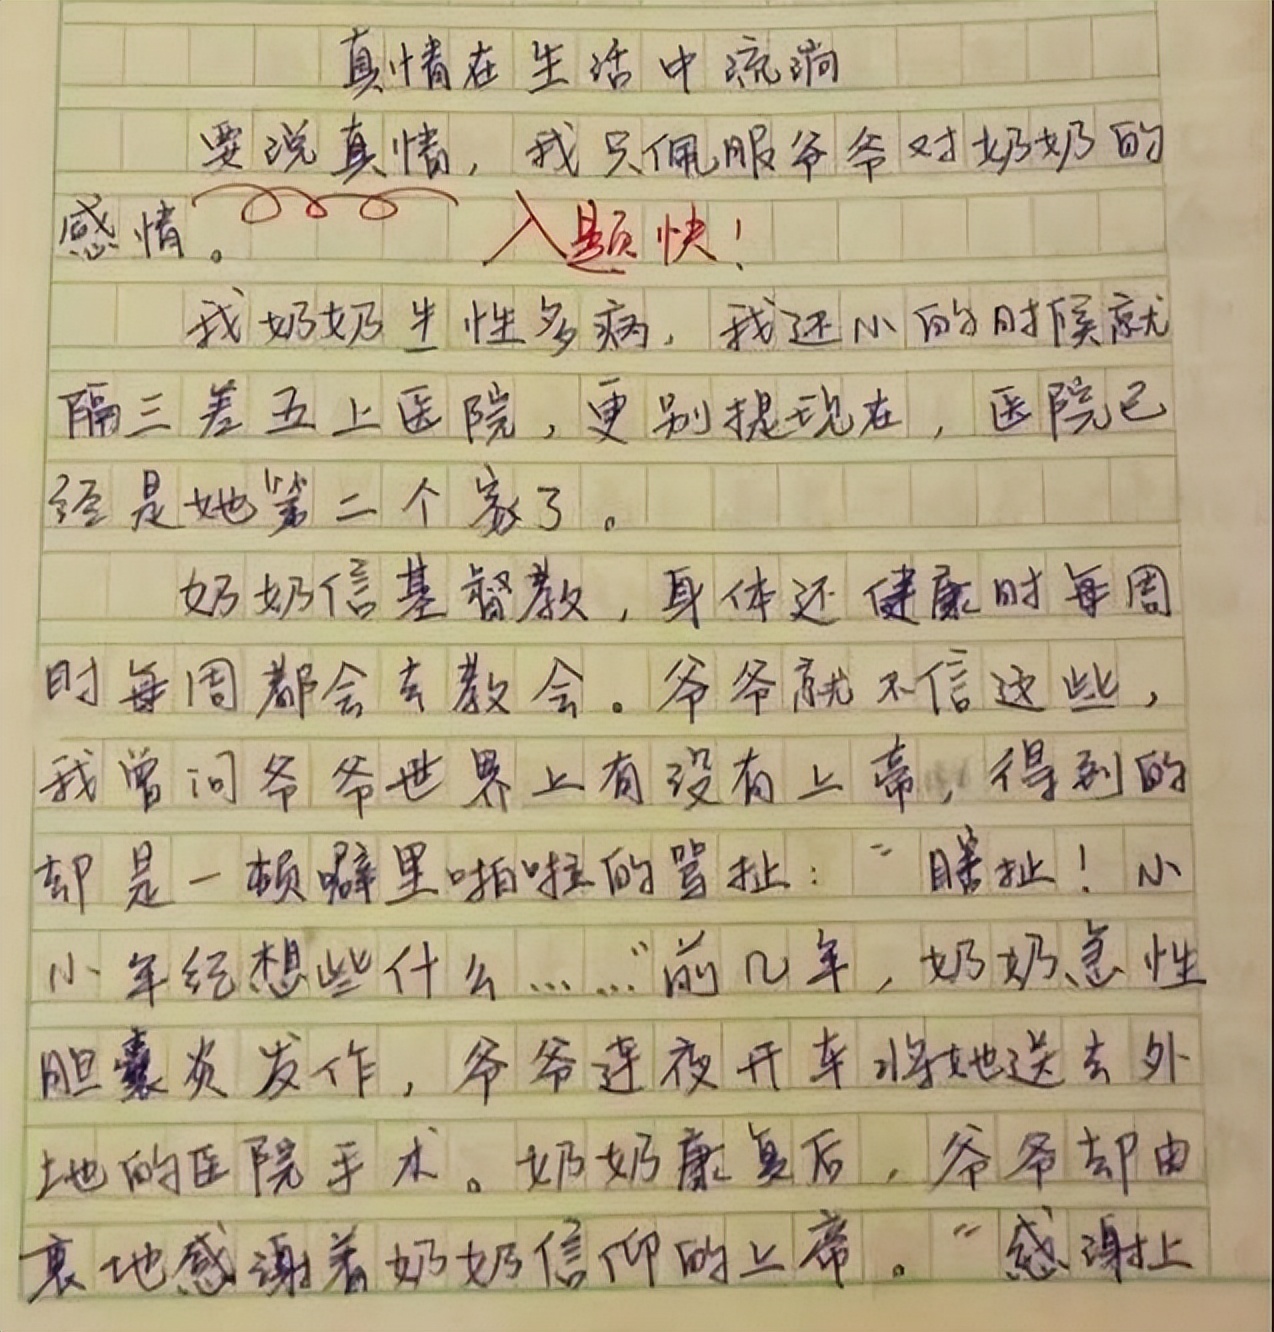 真情在生活中流淌
要说真情，我只佩服爷爷对奶奶的
感情。
入题快！
我奶奶生性多病，我还小的时候就
隔三差五上医院，更别提现在，医院已
经是她第二个家了。
奶奶信基督教，身体还健康时每周
时每周都会去教会。爷爷就不信这些，
我曾问爷爷世界上有没有上帝，得到的
却是一顿噼里啪啦的骂扯：“瞎扯！小
小年纪想些什么……”前几年，奶奶急性
胆囊炎发作，爷爷连夜开车将她送去外
地的医院手术。奶奶康复后，爷爷却由
衷地感谢着奶奶信仰的上帝。“感谢上